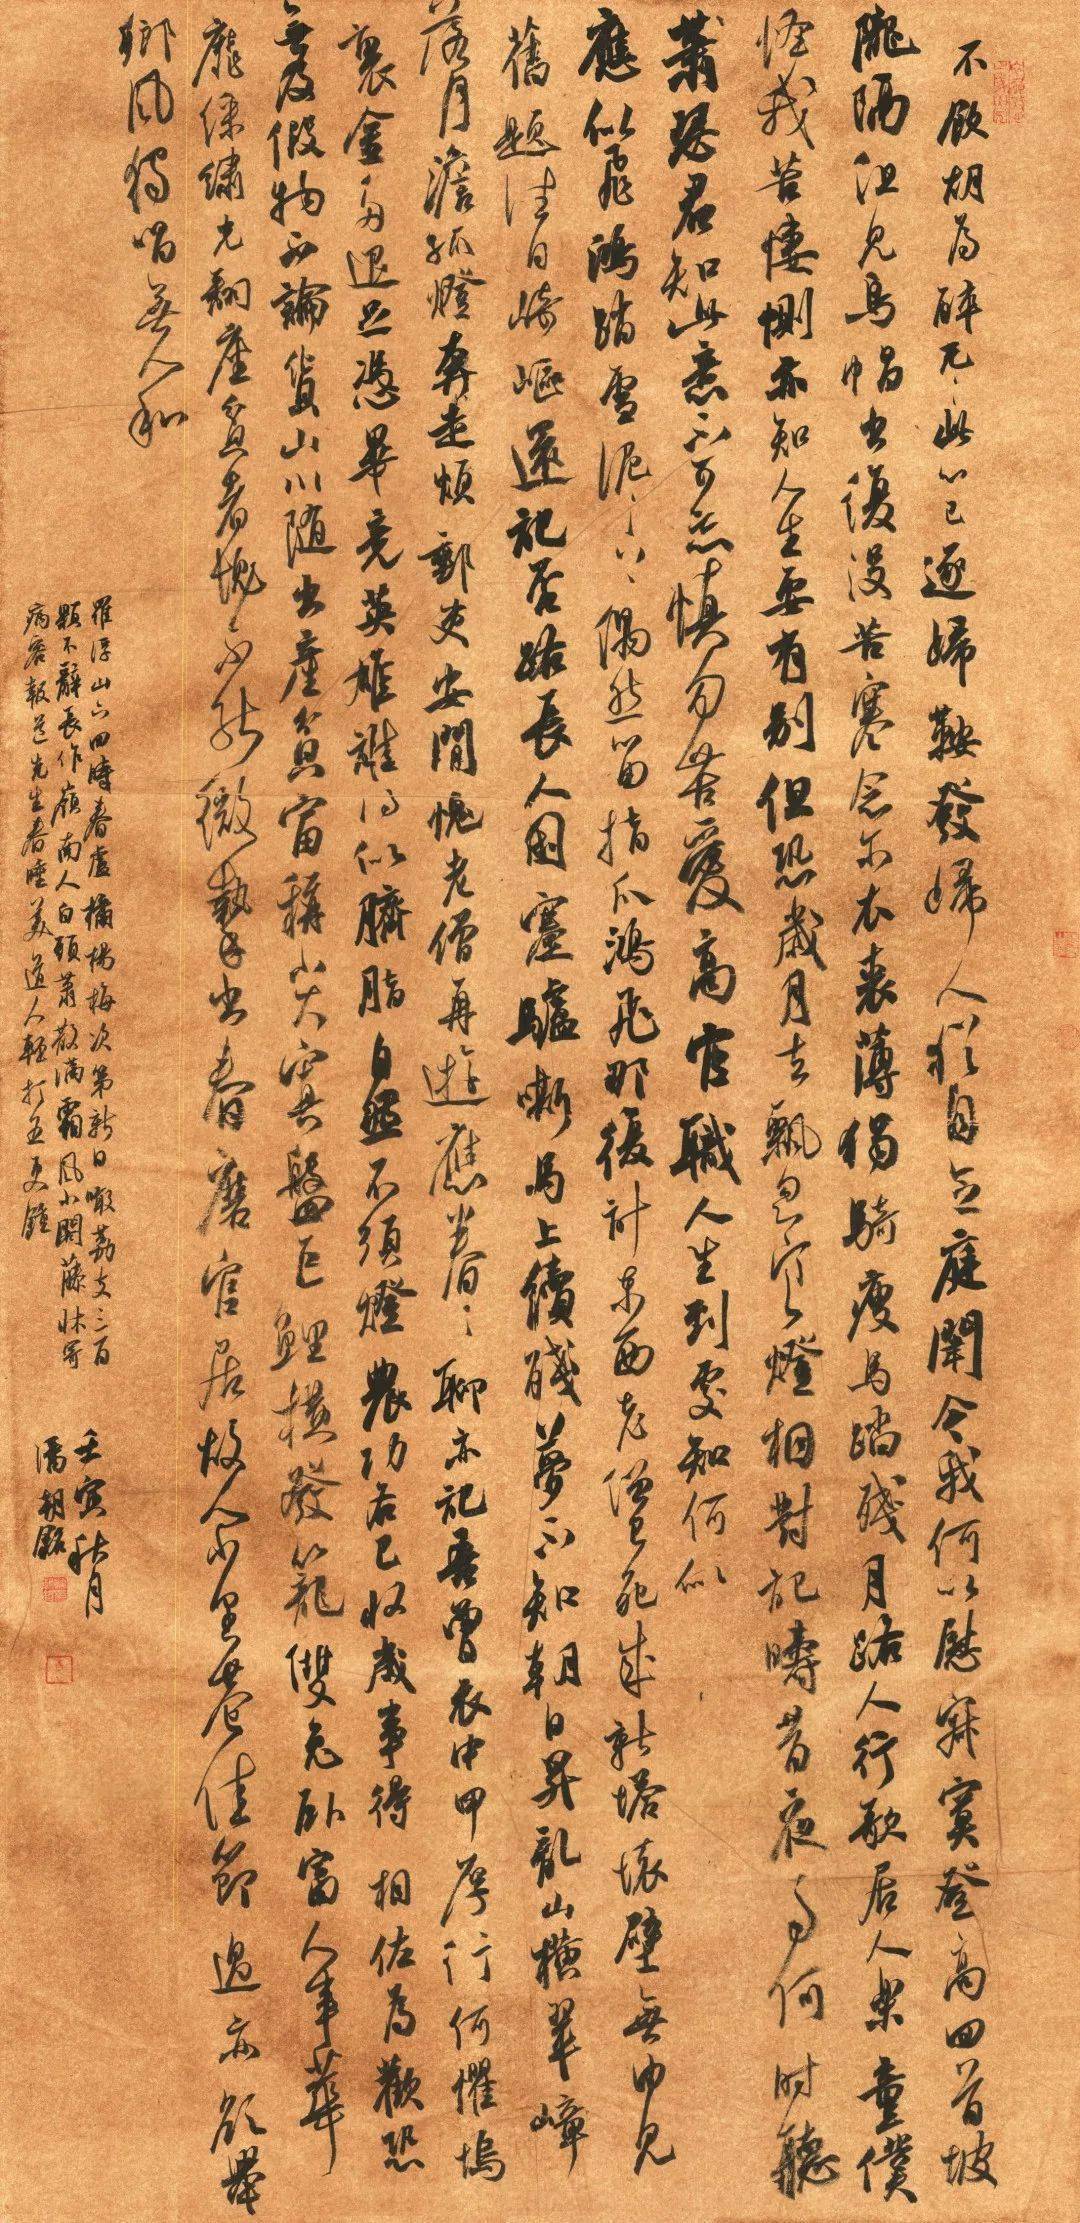 不飲胡為醉兀〻此心已逐歸鞍發歸人猶自念庭闈今我何以慰寂寞登高回首坡
隴隔但見烏帽出復沒苦寒念爾衣裘薄獨騎瘦馬踏殘月路人行歌居人樂童僕
怪我苦悽惻亦知人生要有別但恐歲月去飄忽寒燈相對記疇昔夜雨何時聽
蕭瑟君知此意不可忘慎勿苦愛高官職人生到處知何似
應似飛鴻踏雪泥〻上偶然留指爪鴻飛那復計東西老僧已死成新塔壞壁無由見
舊題往日崎嶇還記否路長人困蹇驢嘶馬上續殘夢不知朝日昇亂山橫翠嶂
落月澹孤燈奔走煩郵吏安閒愧老僧再遊應眷〻聊亦記吾曾衣中甲厚行何懼塢
裏金多退足憑畢竟英雄誰得似臍脂自照不須燈農功各已收歲事得相佐為歡恐
無及假物不論貨山川隨出產貧富稱小大寘盤巨鯉橫發籠雙兔臥富人事華
靡綵繡光翻座貧者愧不能微摯出舂磨官居故人少里巷佳節過亦欲舉
鄉風獨唱無人和
羅浮山下四時春盧橘楊梅次第新日啖荔支三百
顆不辭長作嶺南人白頭蕭散滿霜風小閣藤牀寄
病容報道先生春睡美道人輕打五更鐘
壬寅秋月